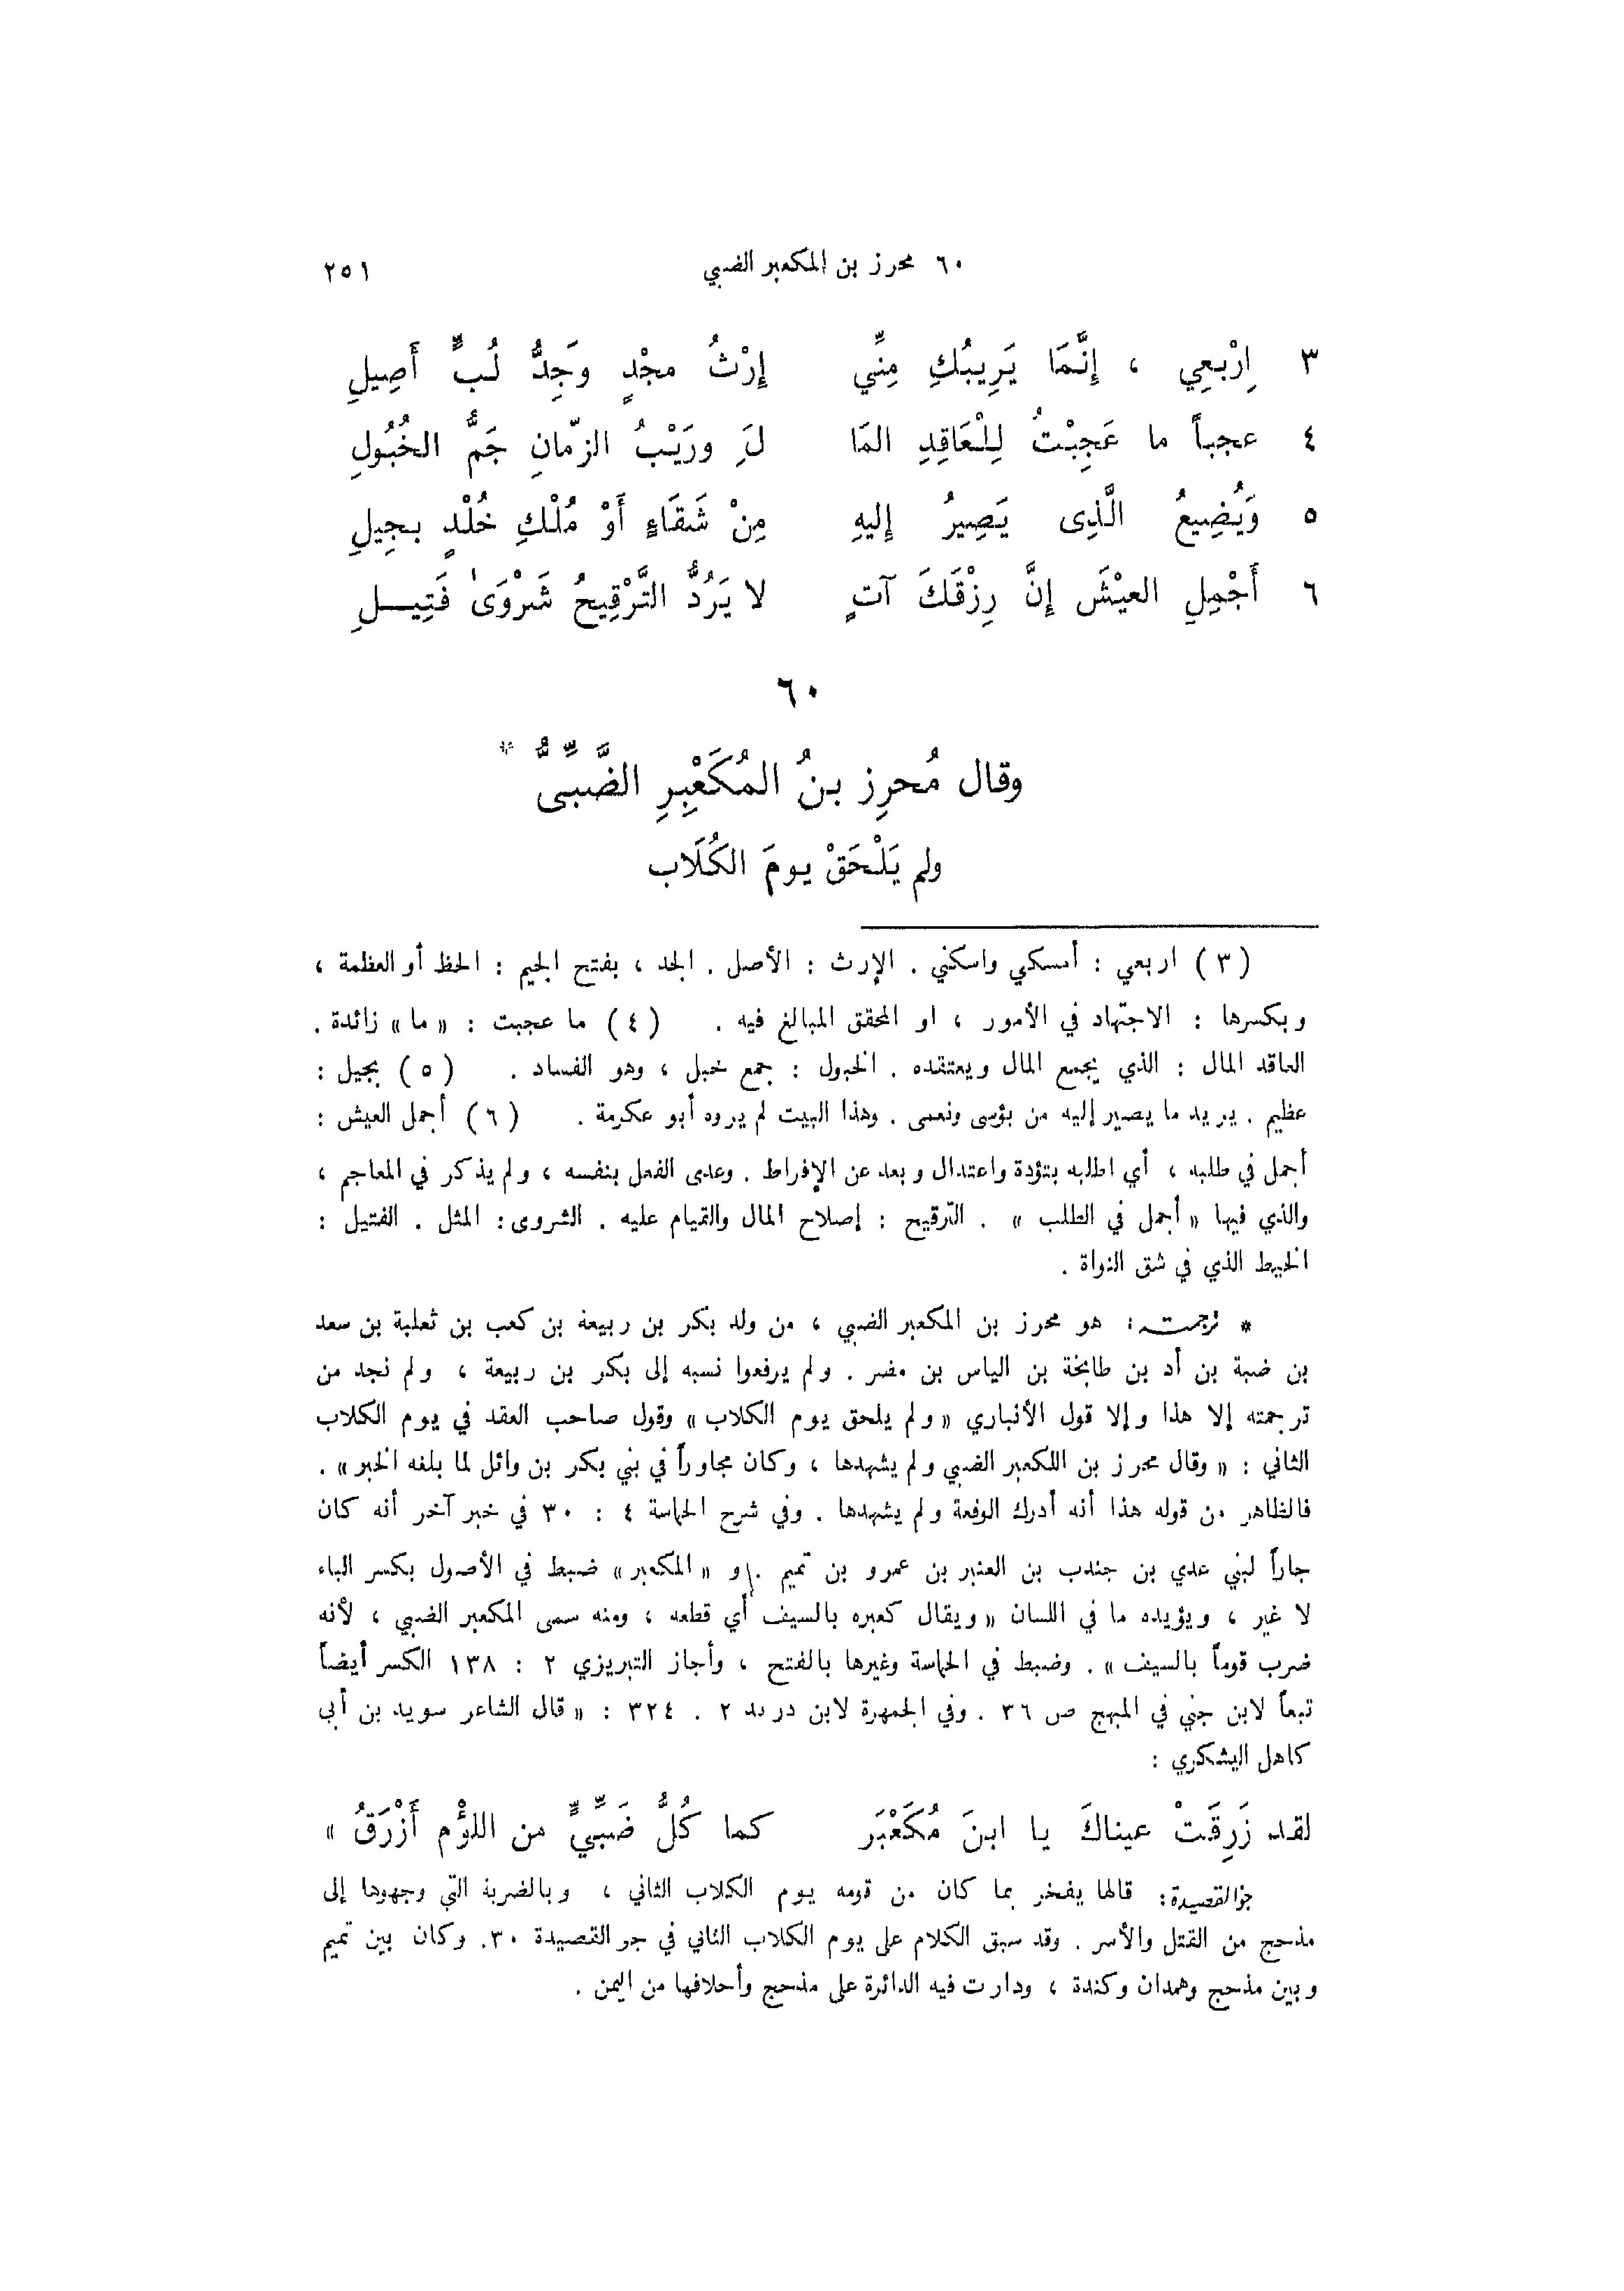 ٦٠ محرز بن المكعبر الضبي ٢٥١
٣ اِرْبَعِي ، إِنَّمَا يَرِيبُكِ مِنِّي إِرْثُ مجْدٍ وَجِدُّ لُبٍّ أَصِيلِ
٤ عجباً ما عَجِبْتُ لِلْعَاقِدِ المَا لَ ورَيْبُ الزّمّانِ جَمُّ الخُبُولِ
٥ وَيُضِيعُ الَّذِى يَصِيرُ إِليهِ مِنْ شَقَاءٍ أَوْ مُلْكِ خُلْدٍ بجِيلِ
٦ أَجْمِلِ العيْشَ إِنَّ رِزْقَكَ آتٍ لا يَرُدُّ التَّرْقِيحُ شَرْوَىٰ فَتِيلِ
٦٠
وقال مُحرِز بنُ المُكَعْبِرِ الضَّبِّىُّ *
ولم يَلْحَقْ يومَ الكُلَاب
( ٣ ) اربعي : أمسكي واسكني . الإرث : الأصل . الجد ، بفتح الجيم : الحظ أو العظمة ،
وبكسرها : الاجتهاد في الأمور ، او المحقق المبالغ فيه . ( ٤ ) ما عجبت : « ما » زائدة .
العاقد المال : الذي يجمع المال ويعتقده . الخبول : جمع خبل ، وهو الفساد . ( ٥ ) بجيل :
عظيم . يريد ما يصير إليه من بؤسى ونعمى . وهذا البيت لم يروه أبو عكرمة . ( ٦ ) أجمل العيش :
أجمل في طلبه ، أي اطلبه بتؤدة واعتدال وبعد عن الإفراط . وعدى الفعل بنفسه ، ولم يذكر في المعاجم ،
والذي فيها « أجمل في الطلب » . الترقيح : إصلاح المال والقيام عليه . الشروى : المثل . الفتيل :
الخيط الذي في شق النواة .
* ترجمته : هو محرز بن المكعبر الضبي ، من ولد بكر بن ربيعة بن كعب بن ثعلبة بن سعد
بن ضبة بن أد بن طابخة بن الياس بن مضر . ولم يرفعوا نسبه إلى بكر بن ربيعة ، ولم نجد من
ترجمته إلا هذا وإلا قول الأنباري « ولم يلحق يوم الكلاب » وقول صاحب العقد في يوم الكلاب
الثاني : « وقال محرز بن المكعبر الضبي ولم يشهدها ، وكان مجاوراً في بني بكر بن وائل لما بلغه الخبر » .
فالظاهر من قوله هذا أنه أدرك الوقعة ولم يشهدها . وفي شرح الحماسة ٤ : ٣٠ في خبر آخر أنه كان
جاراً لبني عدي بن جندب بن العنبر بن عمرو بن تميم . و « المكعبر » ضبط في الأصول بكسر الباء
لا غير ، ويؤيده ما في اللسان « ويقال كعبره بالسيف أي قطعه ، ومنه سمى المكعبر الضبي ، لأنه
ضرب قوماً بالسيف » . وضبط في الحماسة وغيرها بالفتح ، وأجاز التبريزي ٢ : ١٣٨ الكسر أيضاً
تبعاً لابن جني في المبهج ص ٣٦ . وفي الجمهرة لابن دريد ٢ . ٣٢٤ : « قال الشاعر سويد بن أبي
كاهل اليشكري :
لقد زَرِقَتْ عيناكَ يا ابنَ مُكَعْبَر كما كُلُّ ضَبِّيٍّ من اللؤْم أَزْرَقُ »
جو القصيدة : قالها يفخر بما كان من قومه يوم الكلاب الثاني ، وبالضربة التي وجهوها إلى
مذحج من القتل والأسر . وقد سبق الكلام على يوم الكلاب الثاني في جو القصيدة ٣٠ . وكان بين تميم
وبين مذحج وهمدان وكندة ، ودارت فيه الدائرة على مذحج وأحلافها من اليمن .